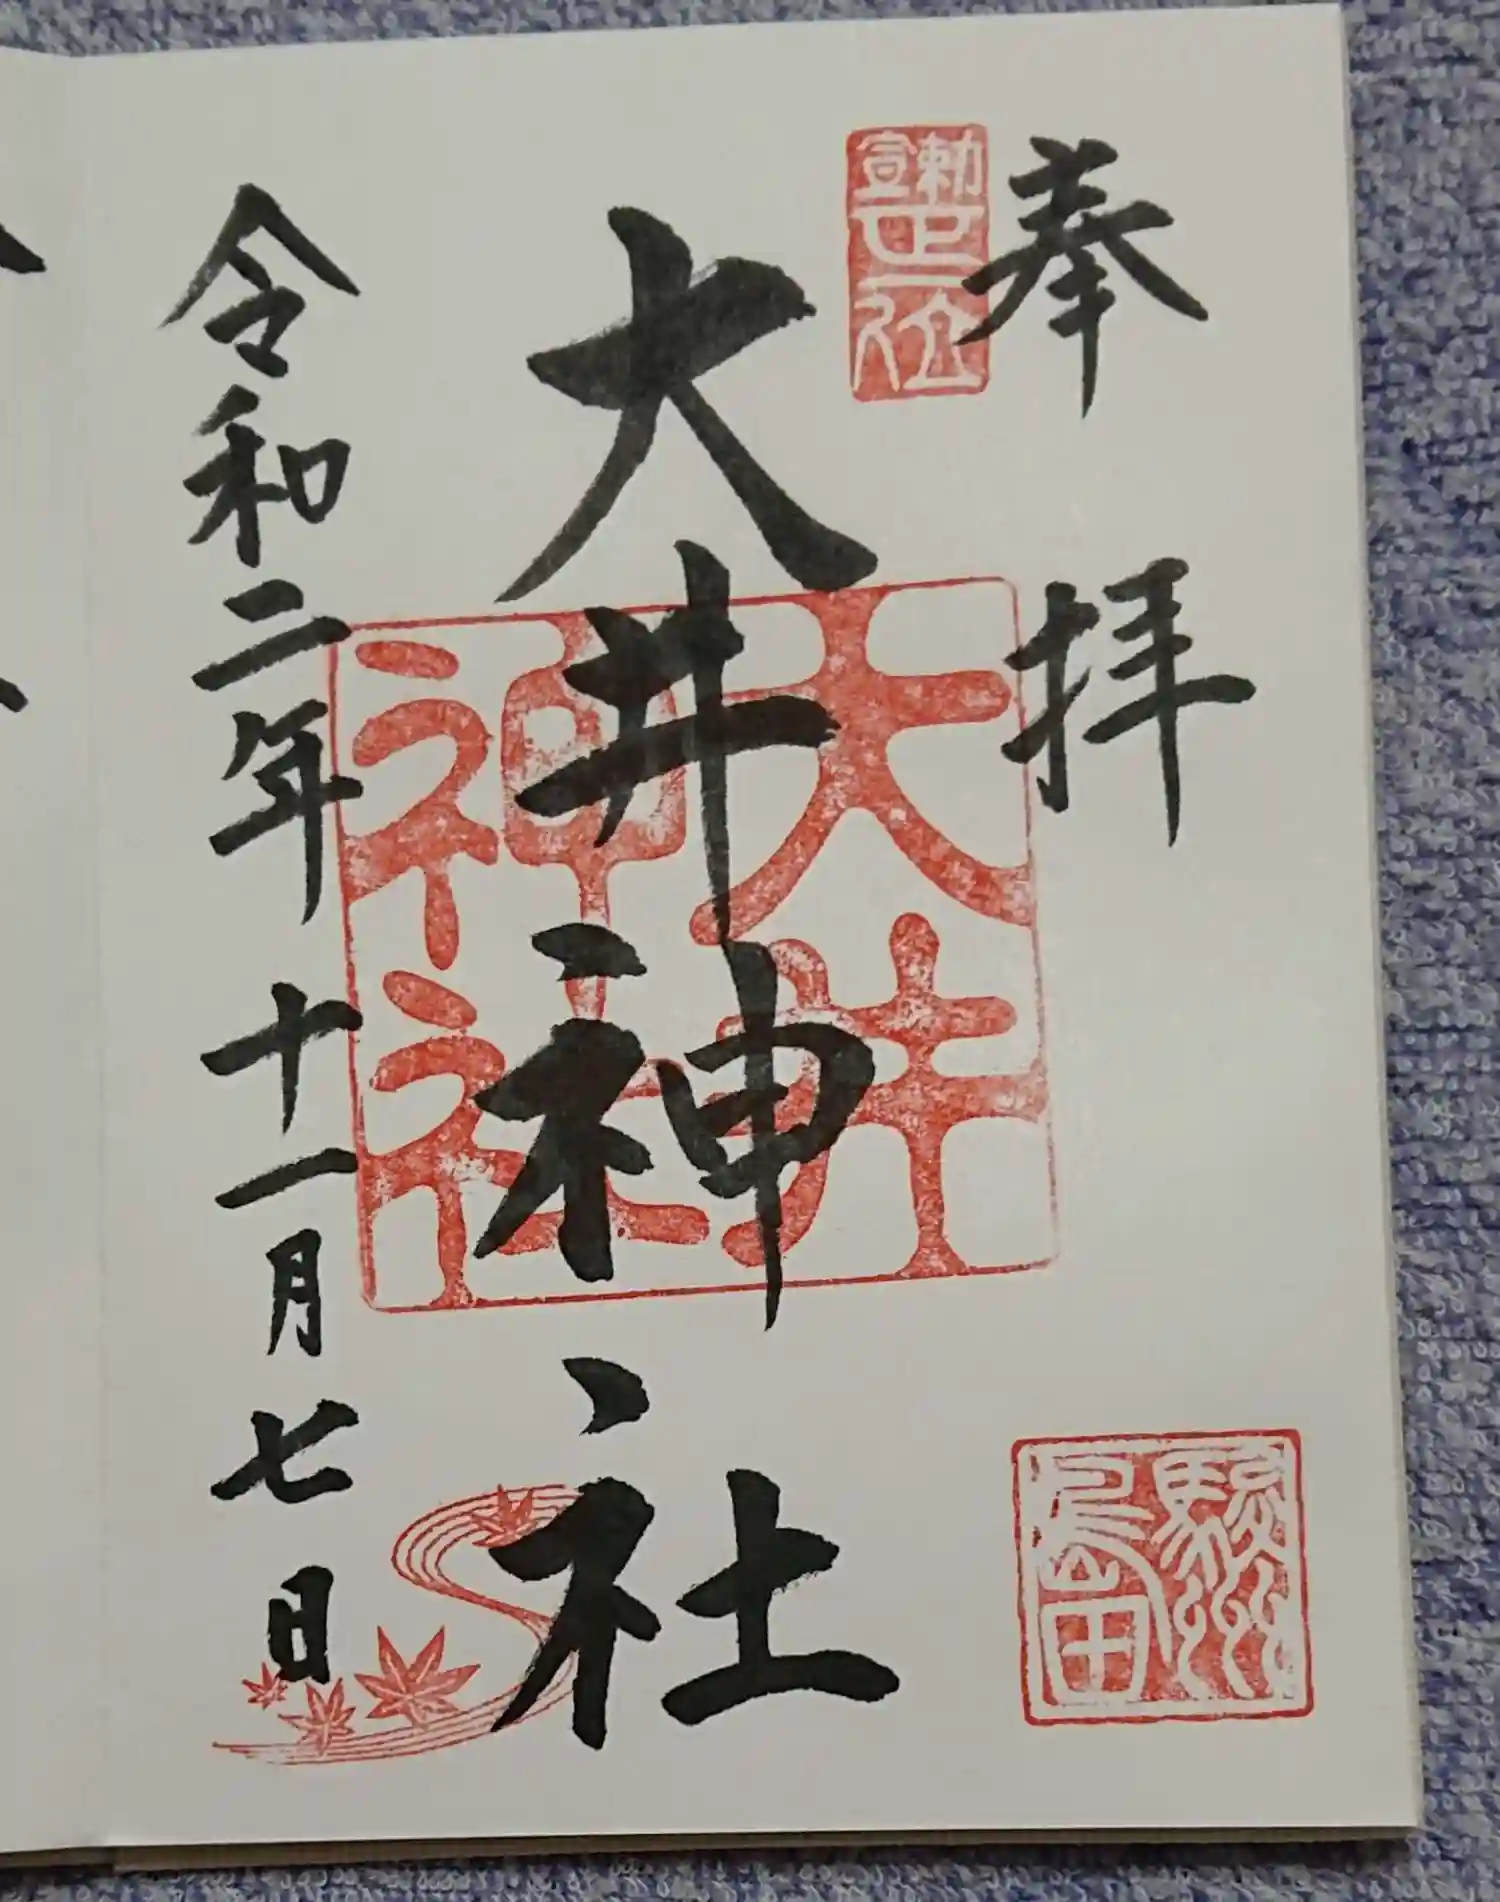 奉拝
勅宣
正一位
大井神社
大井
神社
駿州
島田
令和二年十一月七日